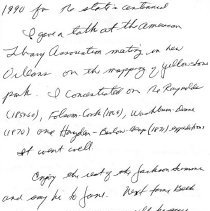 1990 for the state's centennial
I gave a talk at the American
Library Association meeting in New
Orleans on the mapping of Yellowstone
park. I concentrated on the Raynolds
(1860), Folsom-Cook (1869), Washburn-Doane
(1870) and Hayden - Barlow (1871) expeditions
It went well.
Enjoy the rest of the Jackson summer
and say hi to Jane. Next time